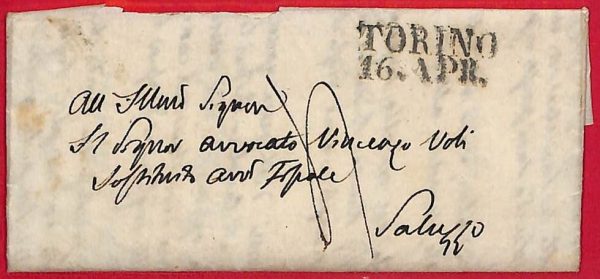 TORINO
16. APR.
All Illmo Signor
Il Signor avvocato Vincenzo Voli
Sostituto avvo Fiscale
Saluzzo